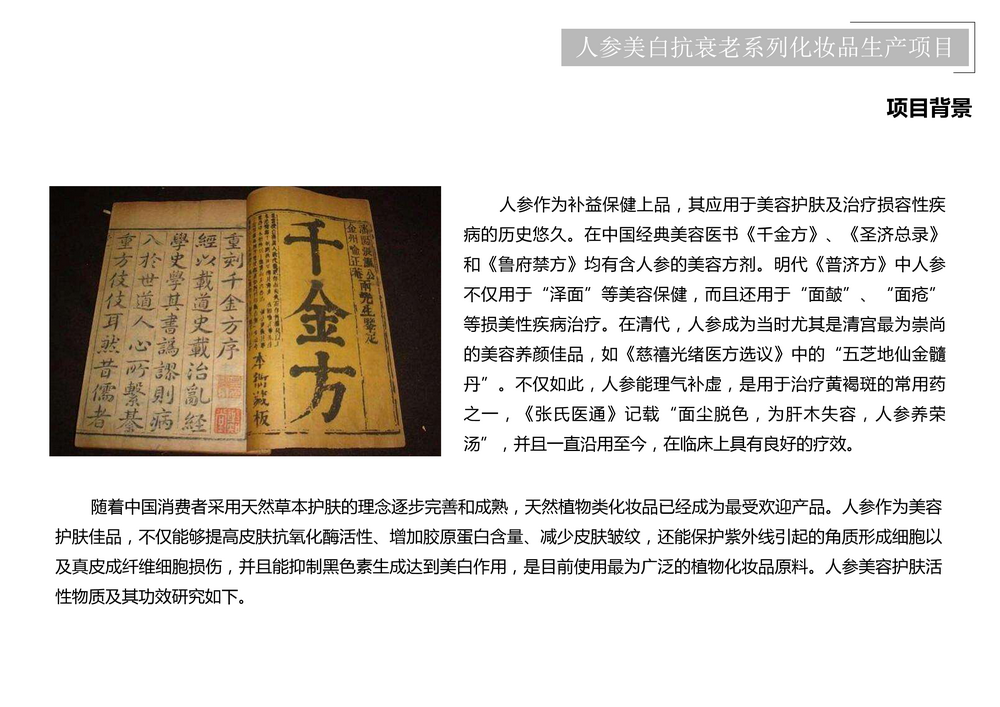 人参美白抗衰老系列化妆品生产项目
项目背景
重刻千金方序
經以載道史載治亂經
學史學其書譌謬則病
八於世道人心所繫綦
重方伎伎耳然昔儒者
千金方
人参作为补益保健上品，其应用于美容护肤及治疗损容性疾
病的历史悠久。在中国经典美容医书《千金方》、《圣济总录》
和《鲁府禁方》均有含人参的美容方剂。明代《普济方》中人参
不仅用于“泽面”等美容保健，而且还用于“面皶”、“面疮”
等损美性疾病治疗。在清代，人参成为当时尤其是清宫最为崇尚
的美容养颜佳品，如《慈禧光绪医方选议》中的“五芝地仙金髓
丹”。不仅如此，人参能理气补虚，是用于治疗黄褐斑的常用药
之一，《张氏医通》记载“面尘脱色，为肝木失容，人参养荣
汤”，并且一直沿用至今，在临床上具有良好的疗效。
随着中国消费者采用天然草本护肤的理念逐步完善和成熟，天然植物类化妆品已经成为最受欢迎产品。人参作为美容
护肤佳品，不仅能够提高皮肤抗氧化酶活性、增加胶原蛋白含量、减少皮肤皱纹，还能保护紫外线引起的角质形成细胞以
及真皮成纤维细胞损伤，并且能抑制黑色素生成达到美白作用，是目前使用最为广泛的植物化妆品原料。人参美容护肤活
性物质及其功效研究如下。